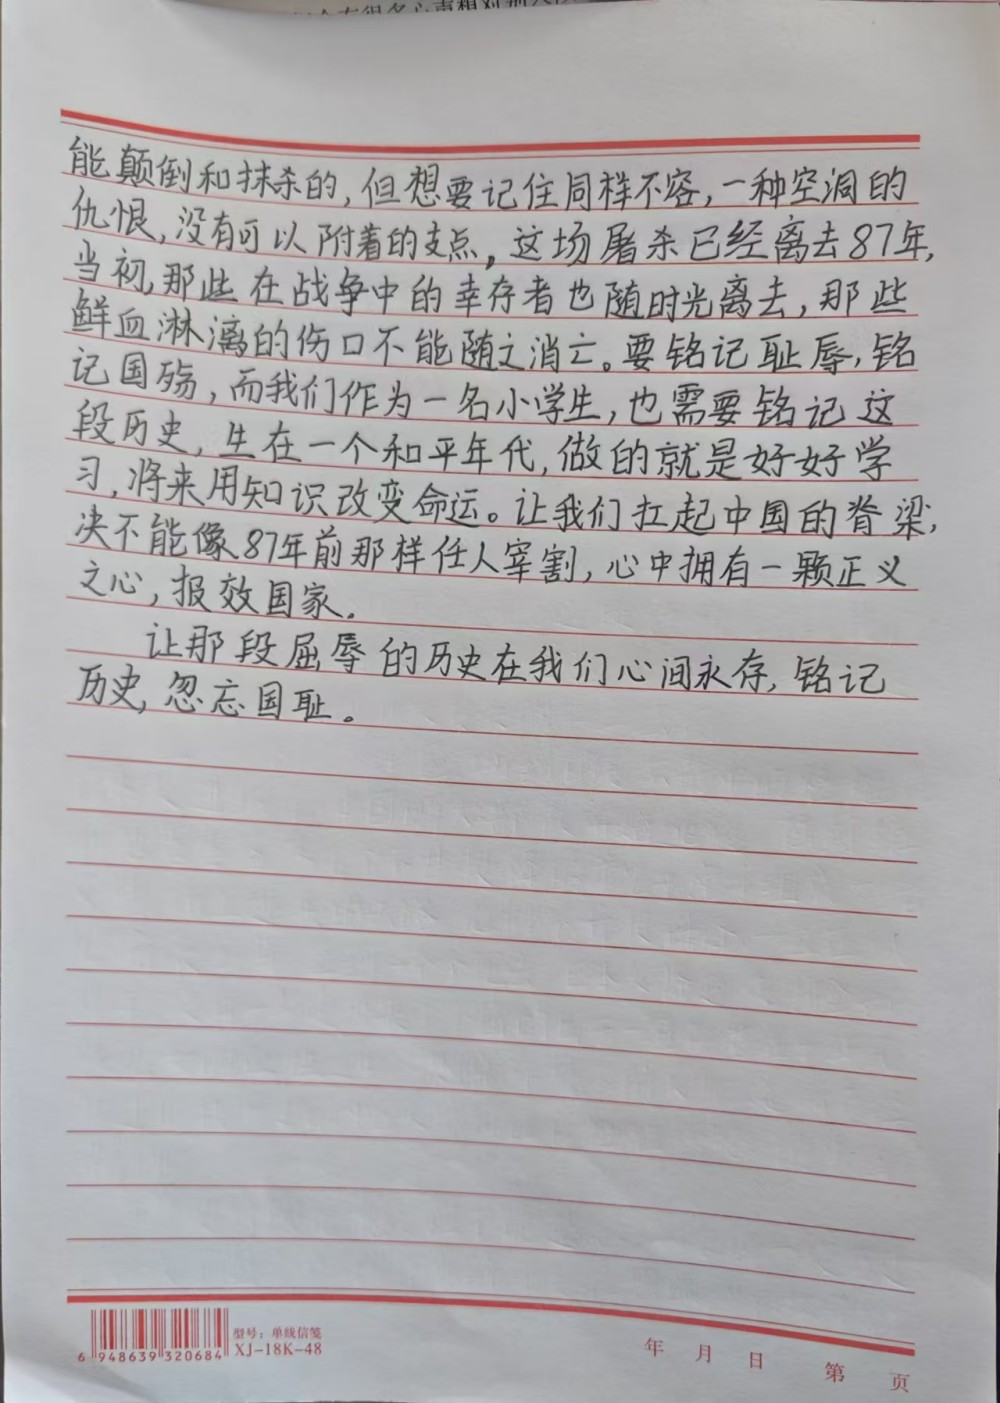 能颠倒和抹杀的,但想要记住同样不容,一种空洞的
仇恨,没有可以附着的支点,这场屠杀已经离去87年,
当初,那些在战争中的幸存者也随时光离去,那些
鲜血淋漓的伤口不能随之消亡。要铭记耻辱,铭
记国殇,而我们作为一名小学生,也需要铭记这
段历史,生在一个和平年代,做的就是好好学
习,将来用知识改变命运。让我们扛起中国的脊梁,
决不能像87年前那样任人宰割,心中拥有一颗正义
之心,报效国家.
让那段屈辱的历史在我们心间永存,铭记
历史,忽忘国耻。
6 948639 320684
型号:单线信笺
XJ-18K-48
年 月 日 第 页